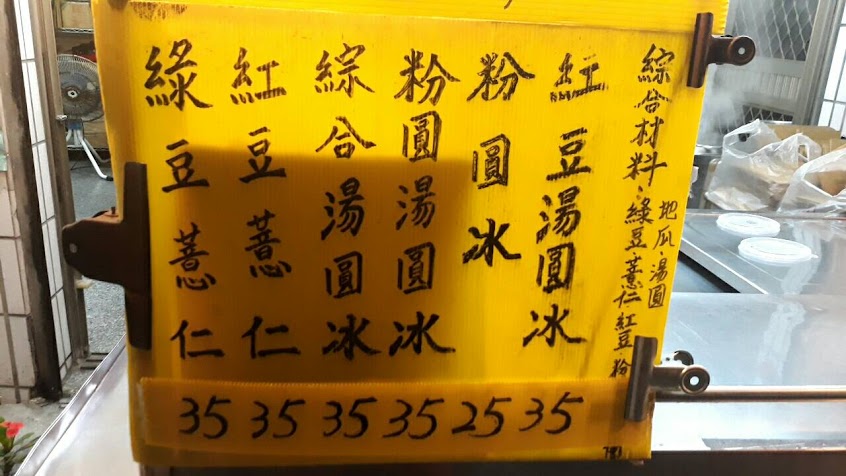 綜合材料:綠豆·薏仁紅豆·粉
地瓜·湯圓
紅豆湯圓冰
粉圓冰
粉圓湯圓冰
綜合湯圓冰
紅豆薏仁
綠豆薏仁
35 35 35 35 25 35